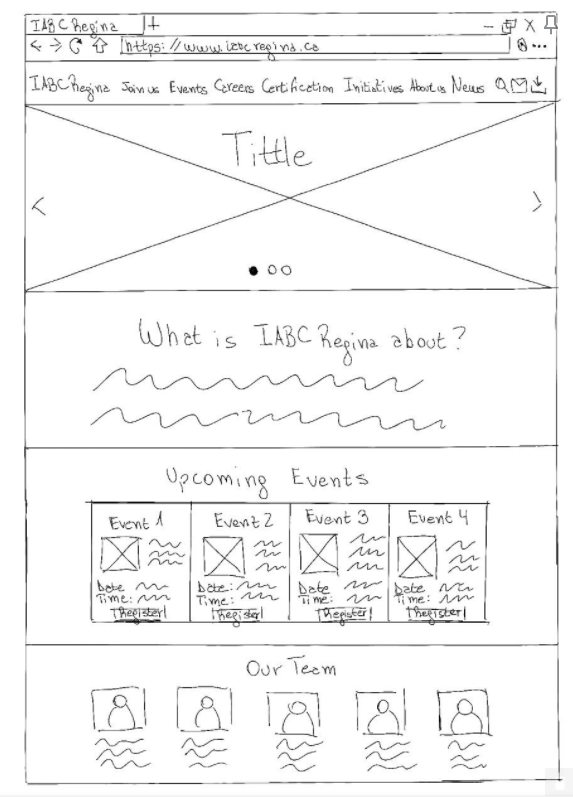 IABC Regina
https://www.iabcregina.ca
IABC Regina Join us Events Careers Certification Initiatives About us News
Tittle
What is IABC Regina about?
Upcoming Events
Event 1 Event 2 Event 3 Event 4
Date Date: Date Date
Time: Time: Time: Time:
Register Register Register Register
Our Team